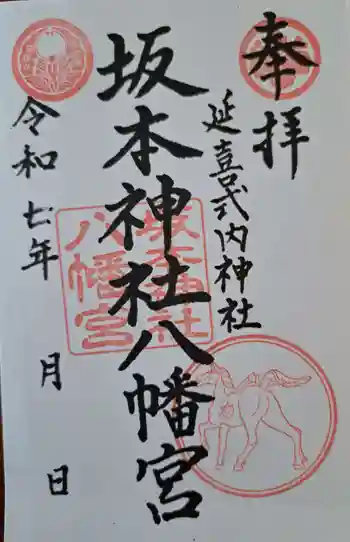 奉拝
延喜式内神社
坂本神社八幡宮
坂本神社
八幡宮
令和七年
月
日